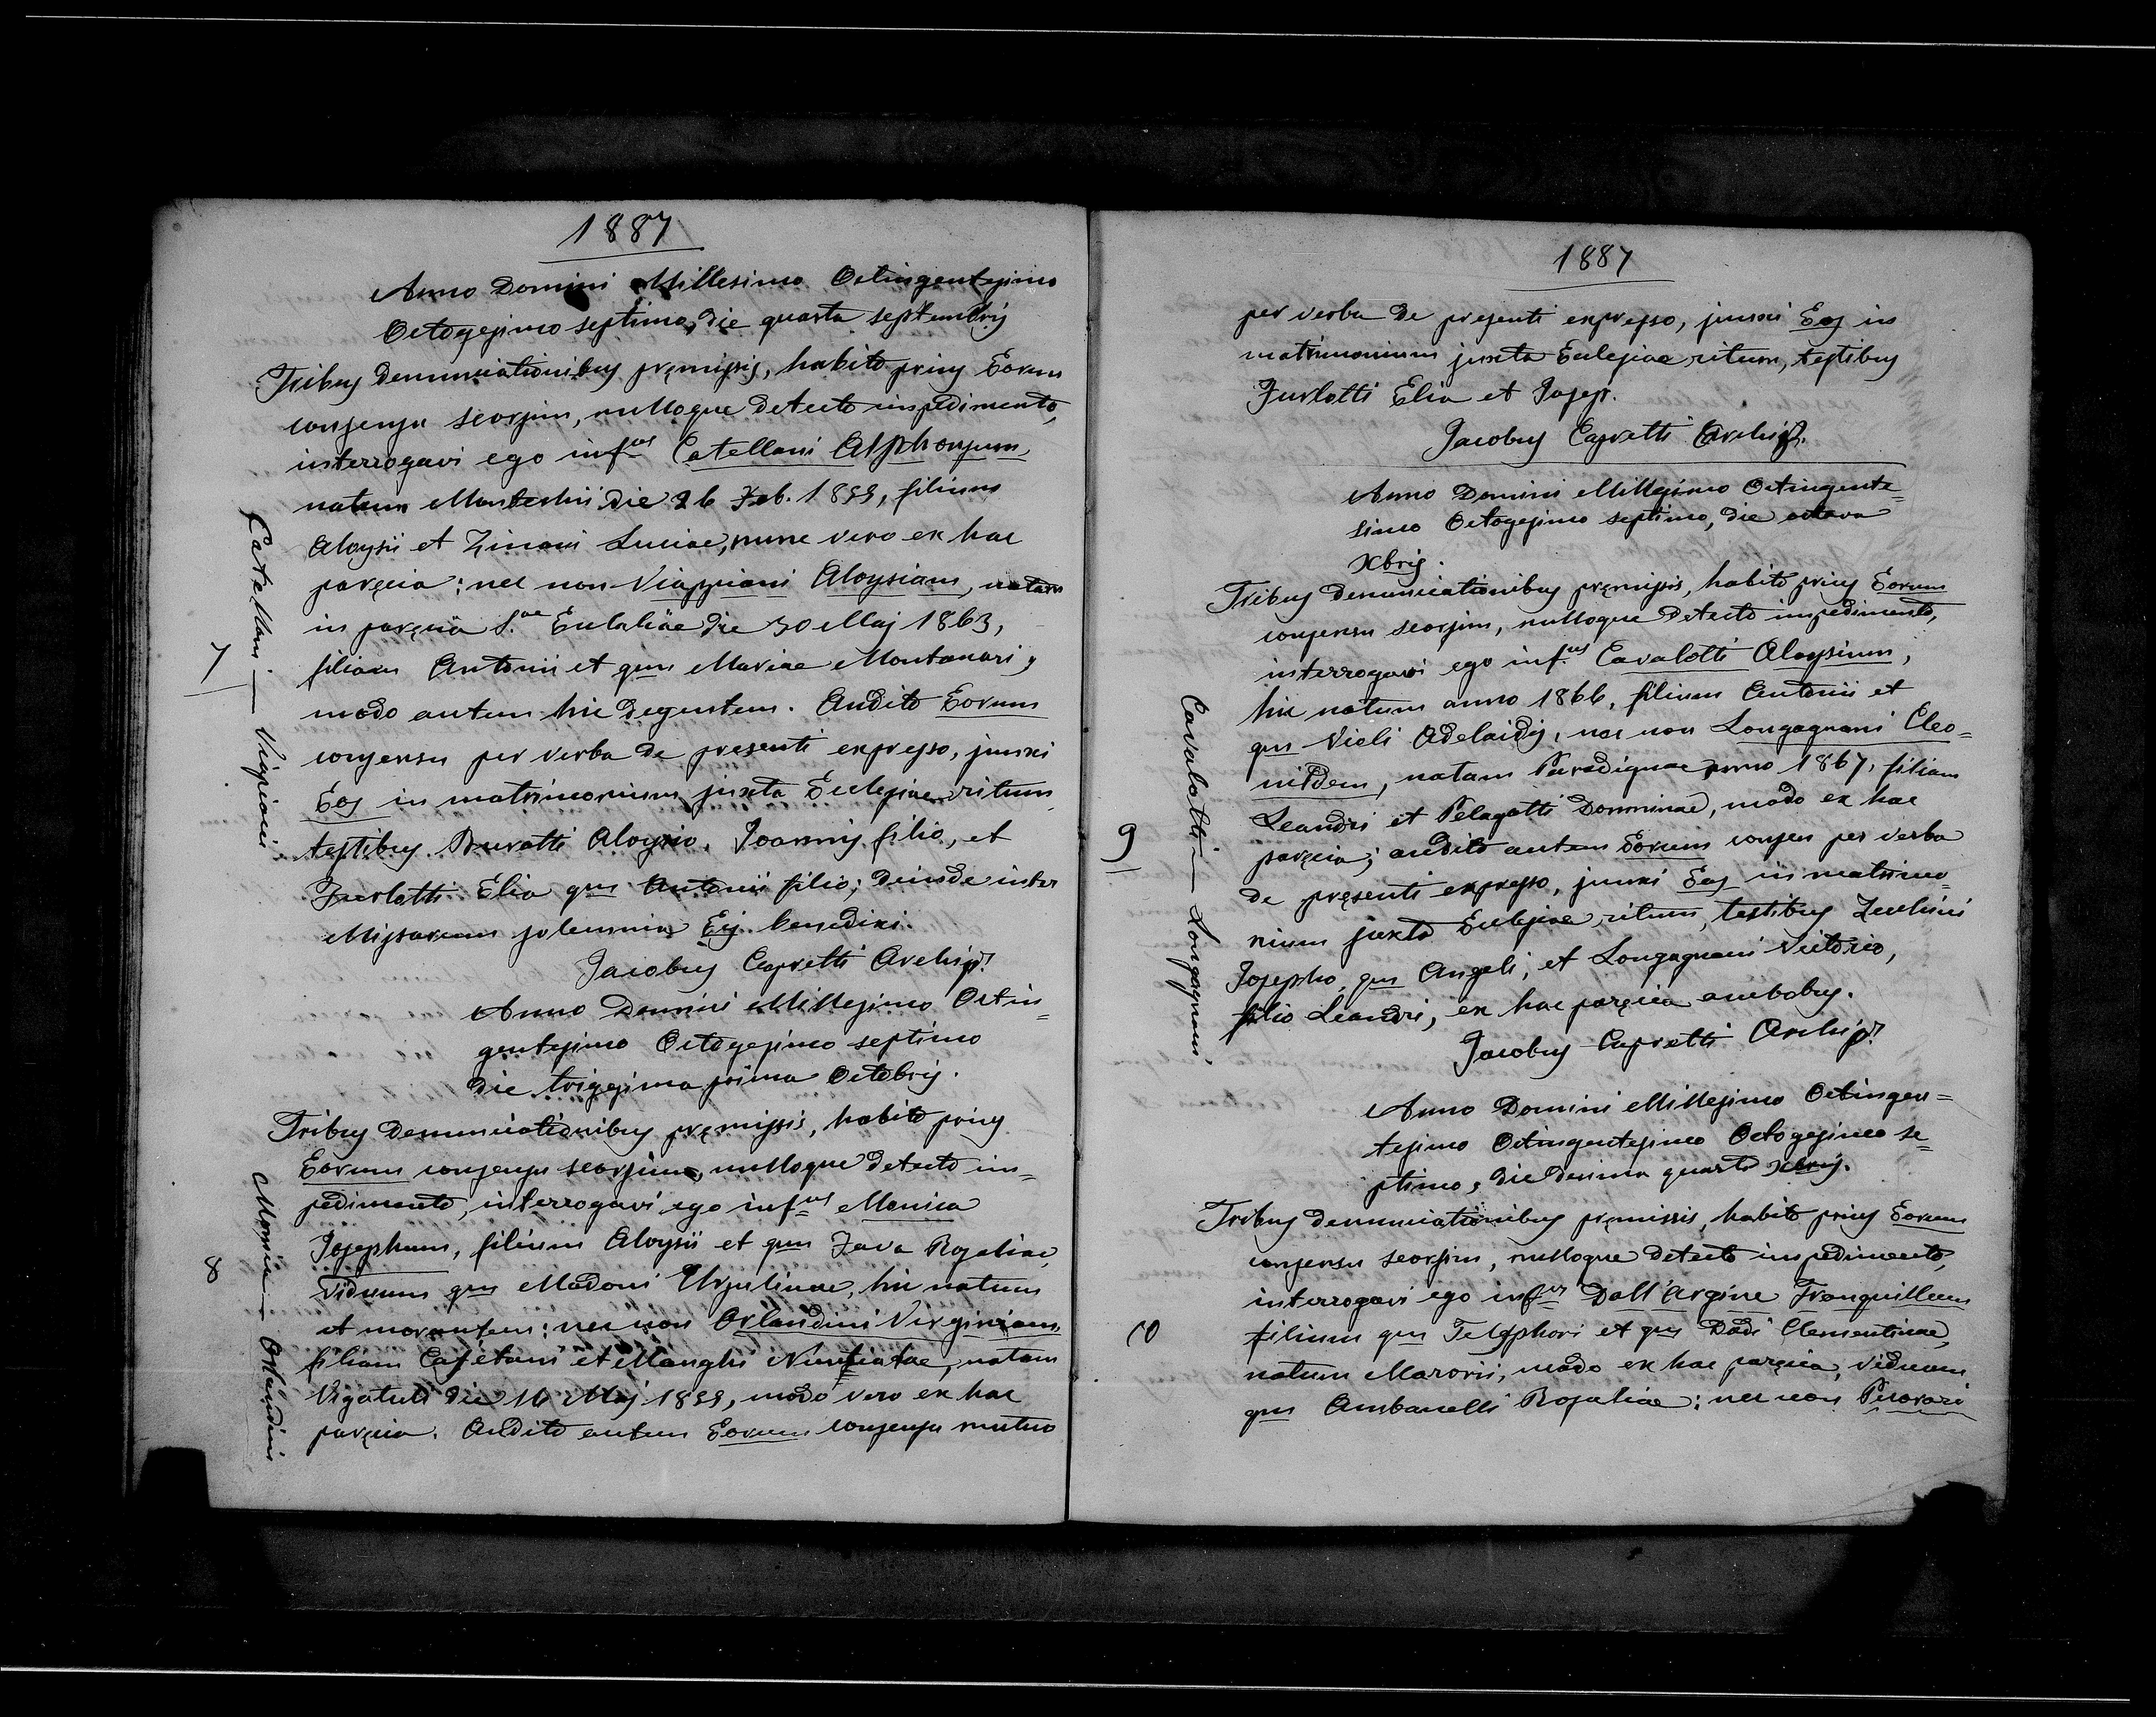 1887
Anno Domini Millesimo Octingentesimo
Octogesimo septimo, die quarta septembris
Tribus denunciationibus pręmissis, habito prius Eorum
consensu seorsim, nulloque detecto impedimento,
interrogavi ego infus Catellani Alphonsum
natum Montechii die 26 Feb. 1859, filium
Aloysii et Zinani Luciae, nunc vero ex hac
paręcia; nec non Viappiani Aloysiam, natam
in paręcia S.ae Eulaliae die 30 Maj 1863,
filiam Antonii et qm Mariae Montanari,
modo autem hic degentem. Audito Eorum
consensu per verba de presenti expresso, junxi
Eos in matrimonium juxta Eclesiae ritum
testibus Buratti Aloysio, Joannis filio, et
Furlotti Elia qm Antonii filio; deinde inter
Missarum solemnia Eis benedixi.
Jacobus Capretti Archip.
Anno Domini Millesimo Octin=
gentesimo Octogesimo septimo
die trigesima prima Octobris.
Tribus denunciationibus pręmissis, habito prius
Eorum consensu seorsim, nulloque detecto im=
pedimento, interrogavi ego infus Monica
Josephum, filium Aloysii et qm Fava Rosaliae,
viduum qm Madoni Ursulinae, hic natum
et morantem; nec non Orlandini Virginiam
filiam Cajetani et Manghi Nuntiatae, natam
Vigatuli die 16 Maj 1859, modo vero ex hac
paręcia. Audito autem Eorum consensu mutuo
7
Catellani — Viappiani
8
Monica — Orlandini
1887
per verba de presenti expresso, junxi Eos in
matrimonium juxta Eclesiae ritum, testibus
Furlotti Elia et Josep.
Jacobus Capretti Archip.
Anno Domini Millesimo Octingente=
simo Octogesimo septimo, die octava
Xbris.
Tribus denunciationibus pręmissis, habito prius Eorum
consensu seorsim, nulloque detecto impedimento,
interrogavi ego infus Cavalotti Aloysium,
hic natum anno 1866, filium Antonii et
qm Violi Adelaidis, nec non Longagnani Cleo=
nildem, natam Paradignae anno 1867, filiam
Leandri et Pelagatti Domninae, modo ex hac
paręcia; audito autem Eorum consen per verba
de pręsenti expresso, junxi Eos in matrimo=
nium juxta Eclesiae ritum, testibus Zuchini
Josepho, qm Angeli, et Longagnani Victorio,
filio Leandri, ex hac paręcia ambobus.
Jacobus Capretti Archip.
Anno Domini Millesimo Octingen=
tesimo Octingentesimo Octogesimo se=
ptimo, die decima quarta Xbris.
Tribus denunciationibus pręmissis, habito prius Eorum
consensu seorsim, nulloque detecto impedimento,
interrogavi ego infus Dall'Argine Tranquillum
filium qm Telesphori et qm Dadi Clementinae,
natum Marorii, modo ex hac paręcia, viduum
qm Ambanelli Rosaliae; nec non Pecorari
9
Cavalotti — Longagnani
10